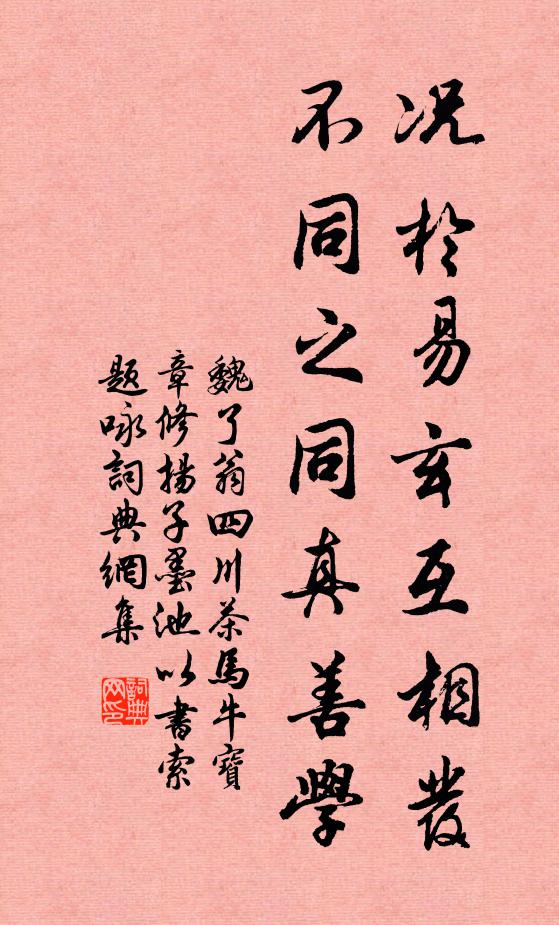 况於易玄互相發
不同之同真善學
魏了翁四川茶馬牛寶
章修揚子墨池以書索
題咏詞典網集
詞典网印